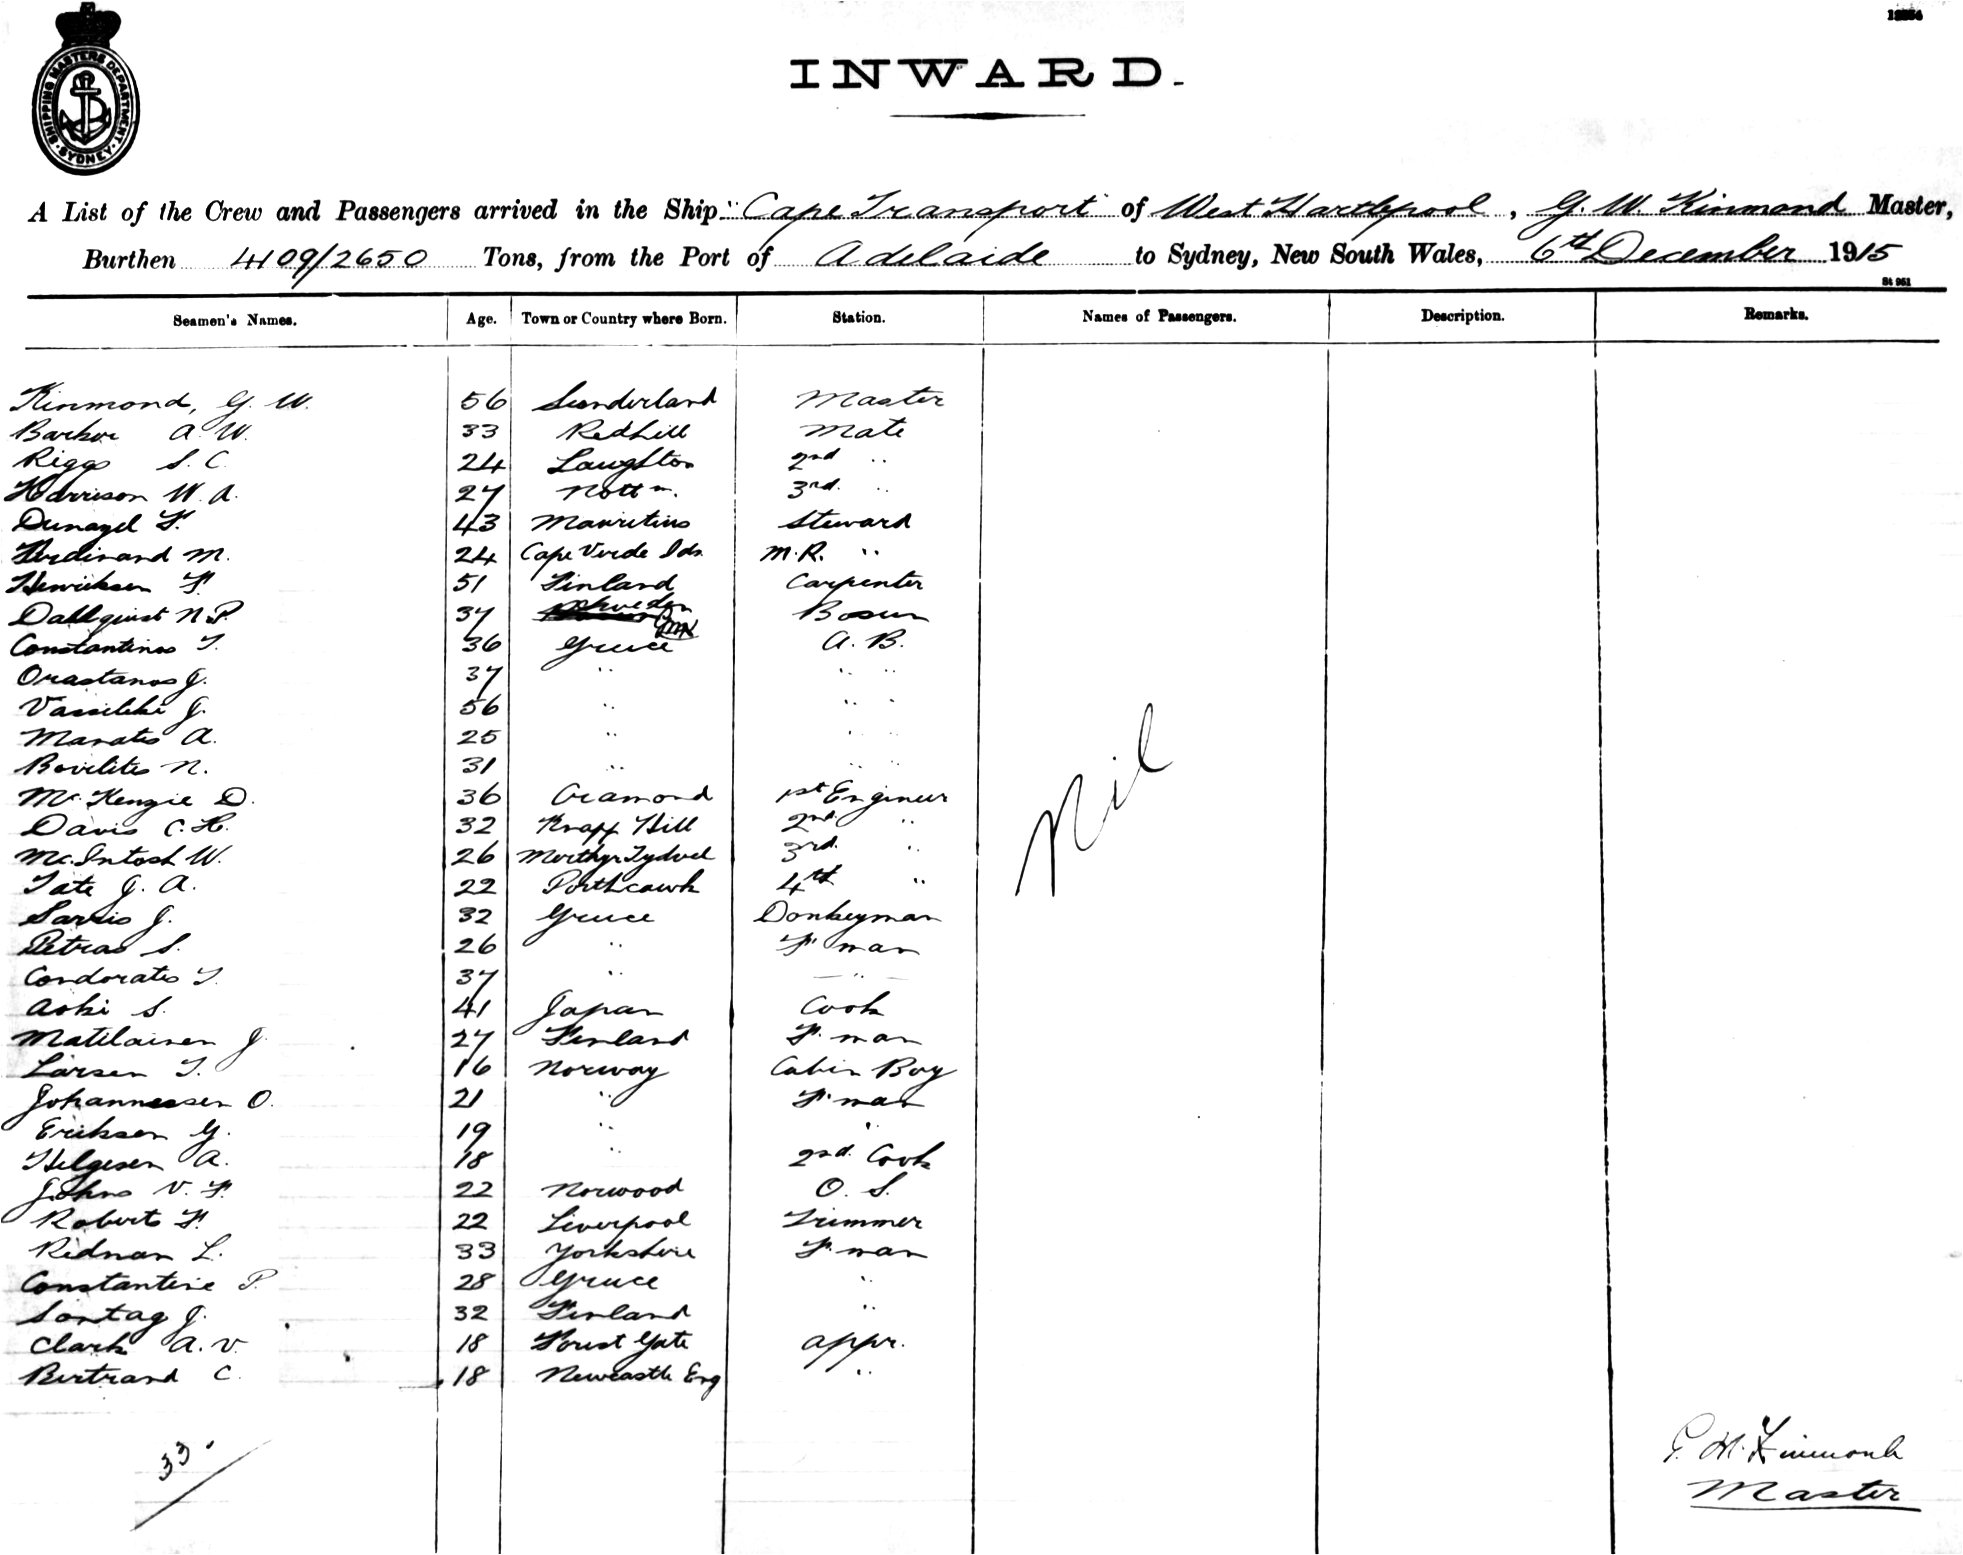 12254
SHIPPING MASTERS DEPARTMENT. SYDNEY.
INWARD.
A List of the Crew and Passengers arrived in the Ship "Cape Transport of West Hartlepool, G. W. Kinmond Master,
Burthen 4109/2650 Tons, from the Port of Adelaide to Sydney, New South Wales, 6th December 1915
St 961
Seamen's Names. Age. Town or Country where Born. Station. Names of Passengers. Description. Remarks.
Kinmond, G. W. 56 Sunderland Master
Barker A. W. 33 Redhill Mate
Riggs S. C. 24 Laughton 2nd "
Harrison W. A. 27 Nottm. 3rd. "
Dunazel F. 43 Mauritius Steward
Ferdinand M. 24 Cape Verde Ids. M.R. "
Henricksen F. 51 Finland Carpenter
Dahlquist N. P. 37 Schweden GWK Bosun
Constantinos T. 36 Greece A. B.
Orastanos J. 37 " " "
Vassileki J. 56 " " "
Manatis A. 25 " " "
Bovilitis N. 31 " " "
McKenzie D. 36 Cramond 1st Engineer
Davis C. H. 32 Knapp Hill 2nd. "
McIntosh W. 26 Merthyr Tydvel 3rd. "
Tate J. A. 22 Porthcawl 4th "
Sarris J. 32 Greece Donkeyman
Petras S. 26 " F'man
Condoratis T. 37 " "
Aoki S. 41 Japan Cook
Matilainen J. 27 Finland F'man
Larsen T. 16 Norway Cabin Boy
Johannessen O. 21 " F'man
Eriksen G. 19 " "
Helgesen A. 18 " 2nd. Cook
Johns V. F. 22 Norwood O. S.
Roberts F. 22 Liverpool Trimmer
Ridnan L. 33 Yorkshire F'man
Constantine P. 28 Greece "
Sontag J. 32 Finland "
Clark A. V. 18 Forest Gate appr.
Bertrand C. 18 Newcastle Eng "
Nil
33.
G. W. Kinmond
Master